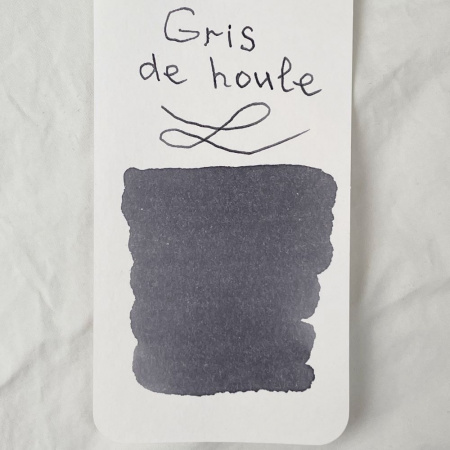 Gris
de houle